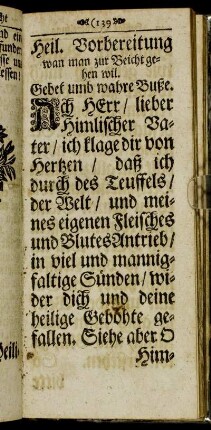 (139)
Heil. Vorbereitung
wan man zur Beicht ge-
hen wil.
Gebet umb wahre Buße.
Ach HErr / lieber
Himlischer Va-
ter / ich klage dir von
Hertzen / daß ich
durch des Teuffels /
der Welt / und mei-
nes eigenen Fleisches
und Blutes Antrieb /
in viel und mannig-
faltige Sünden / wi-
der dich und deine
heilige Gebohte ge-
fallen. Siehe aber O
Him-